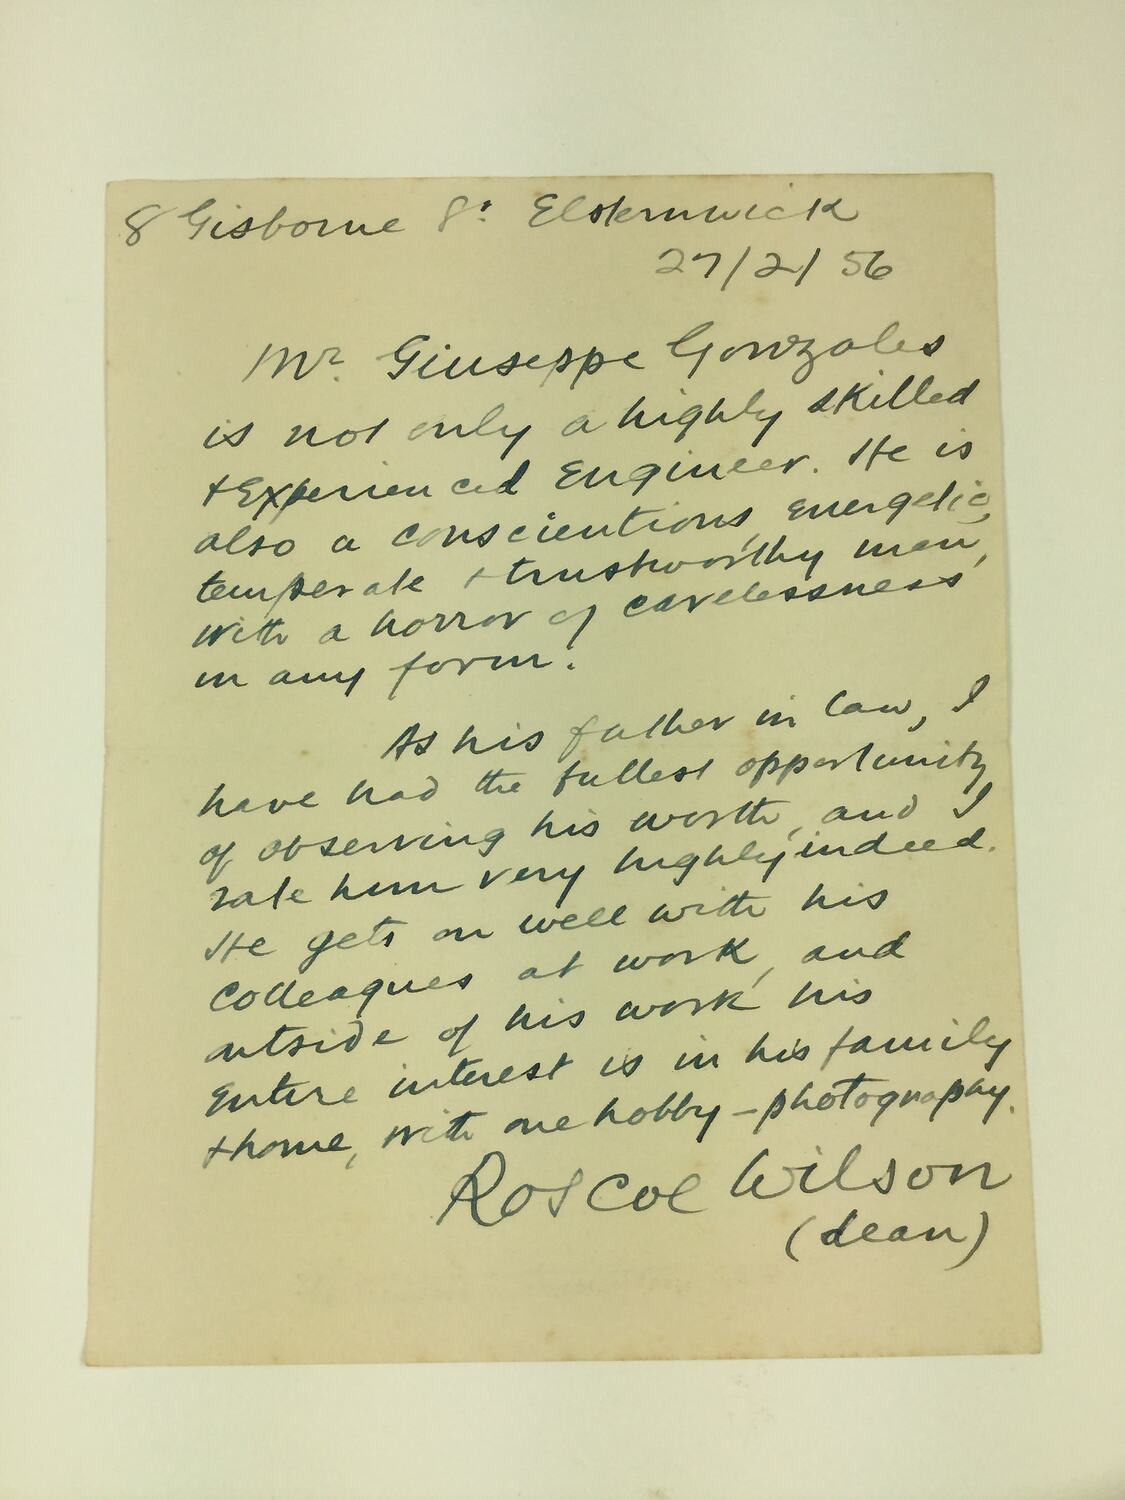 8 Gisborne St Elsternwick
27/2/56
Mr. Giuseppe Gonzales
is not only a highly skilled
+ Experienced Engineer. He is
also a conscientious, energetic,
temperate + trustworthy man,
with a horror of carelessness
in any form.
As his father in law, I
have had the fullest opportunity
of observing his worth, and I
rate him very highly indeed.
He gets on well with his
colleagues at work, and
outside of his work his
Entire interest is in his family
+ home, with one hobby – photography.
Roscoe Wilson
(dean)